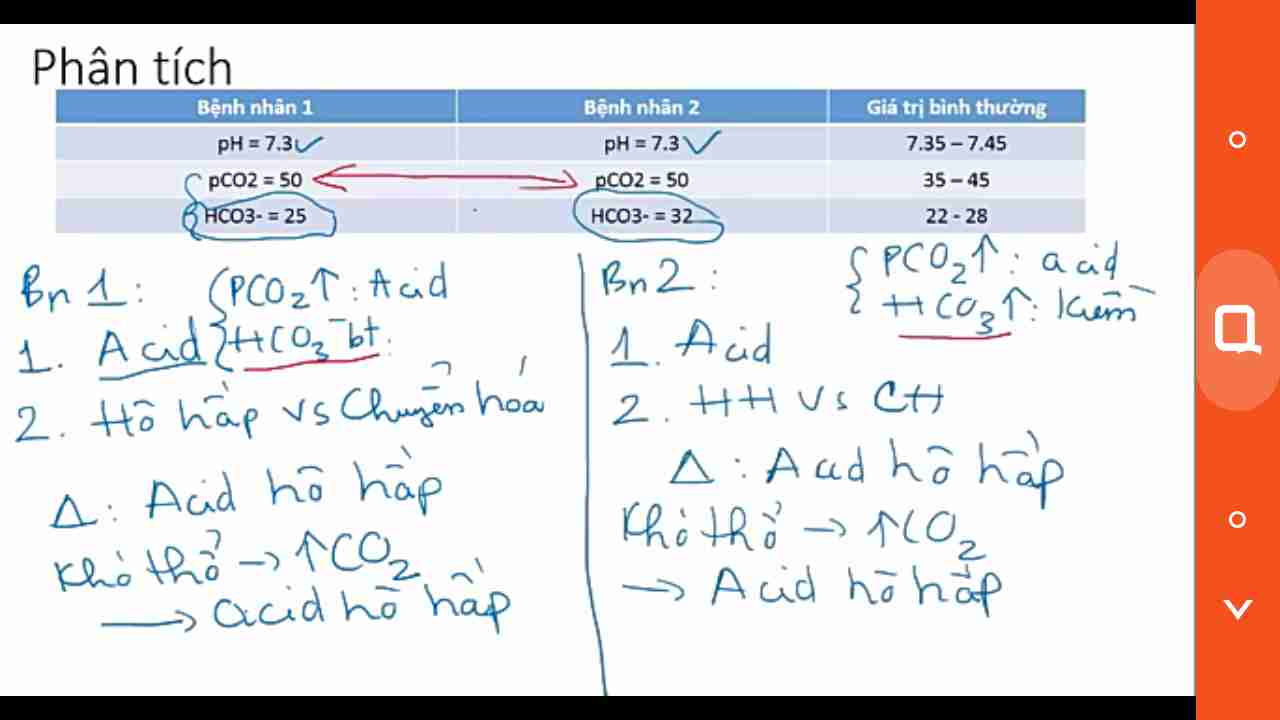 Phân tích
Bệnh nhân 1 Bệnh nhân 2 Giá trị bình thường
pH = 7.3 pH = 7.3 7.35 – 7.45
pCO2 = 50 pCO2 = 50 35 – 45
HCO3- = 25 HCO3- = 32 22 - 28
Bn 1: PCO₂↑: Acid
1. Acid HCO₃⁻ bt.
2. Hô hấp vs Chuyển hóa
Δ: Acid hô hấp
Khó thở → ↑CO₂
→ acid hô hấp
Bn 2: PCO₂↑: acid
HCO₃↑: Kiềm
1. Acid
2. HH vs CH
Δ: Acid hô hấp
Khó thở → ↑CO₂
→ Acid hô hấp